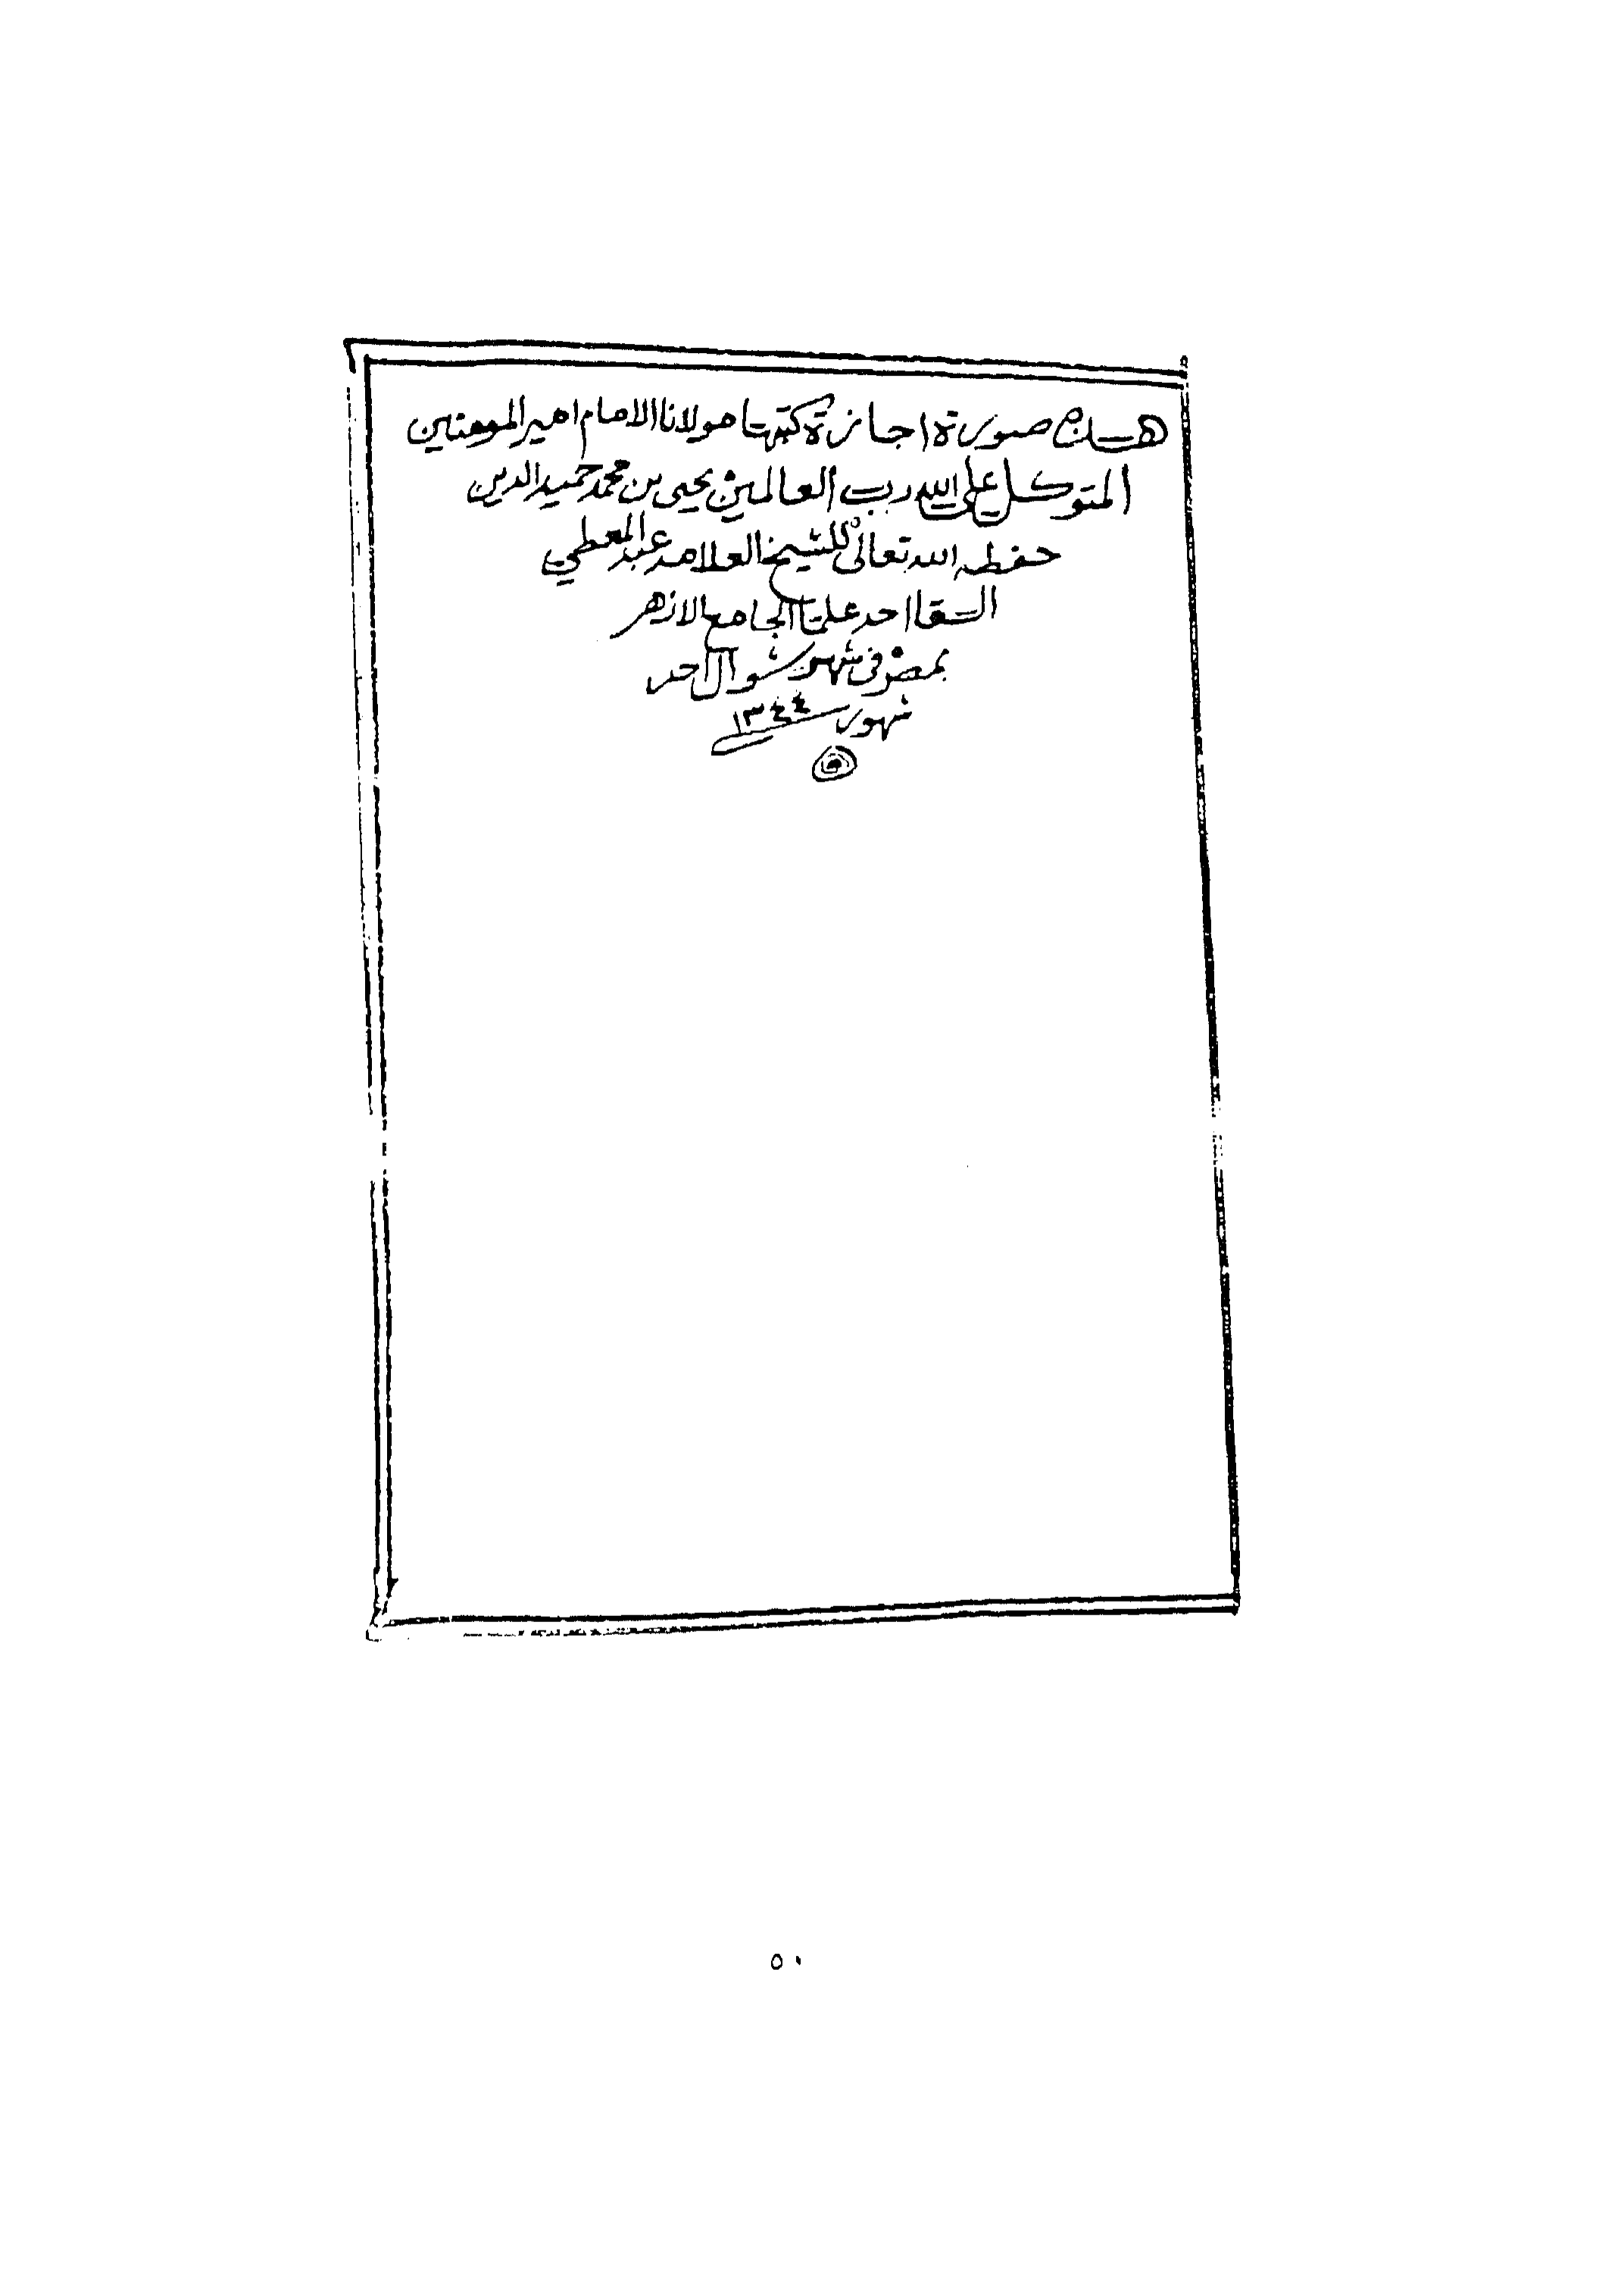 هذه صورة اجازة كتبها مولانا الامام امير المومنين
المتوكل على الله رب العالمين يحيى بن محمد حميد الدين
حفظه الله تعالى للشيخ العلامه عبد المعطي
السقا احد علماء الجامع الازهر
بمصر في شهر شوال احد
شهور ١٣٤٤
٥٠